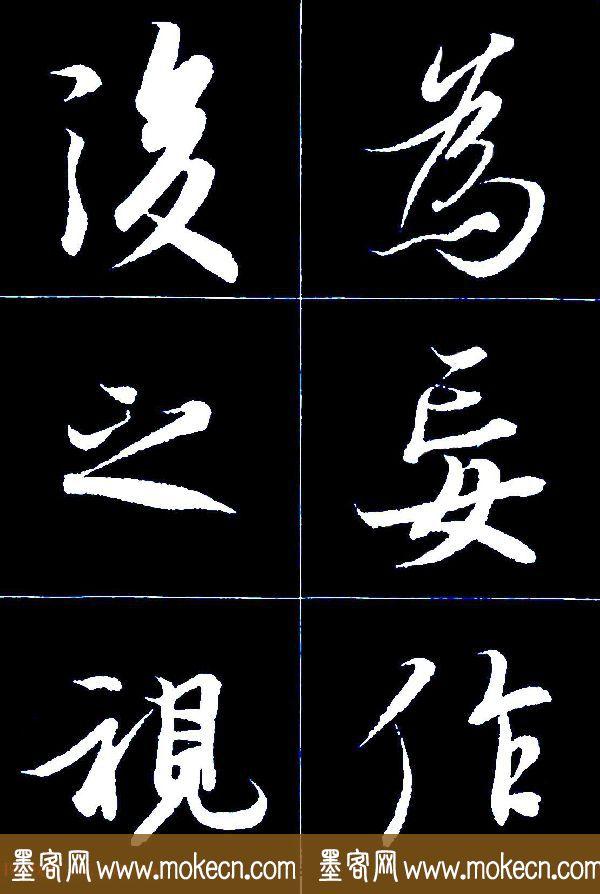 為妄作
後之視
墨客网 www.mokecn.com 墨客网 www.mokecn.com